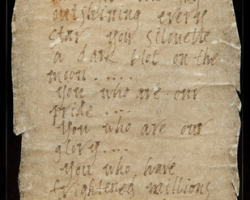 outshining every
star your silouette
a dark blot on the
moon....
You who are our
pride ...
You who are our
glory....
You who have
frightened millions